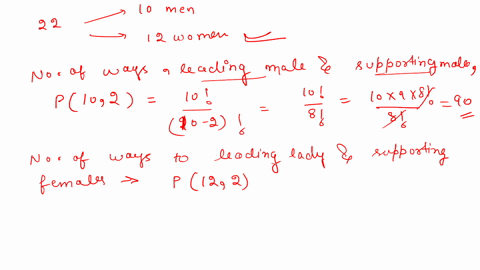 22 → 10 men
→ 12 women
No. of ways a leading male & supporting male,
P(10,2) = 10! / (10-2)! = 10! / 8! = 10 × 9 × 8! / 8! = 90
No. of ways to leading lady & supporting
females ⇒ P(12,2)